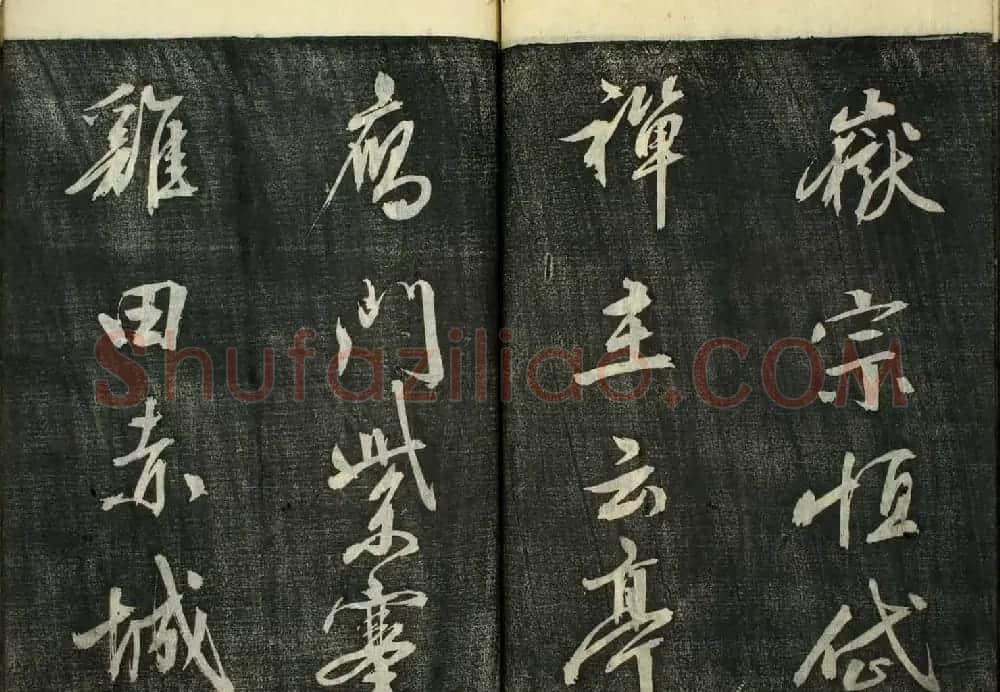 嶽宗恒岱
禪主云亭
鴈門紫塞
雞田赤城
Shufaziliao.COM